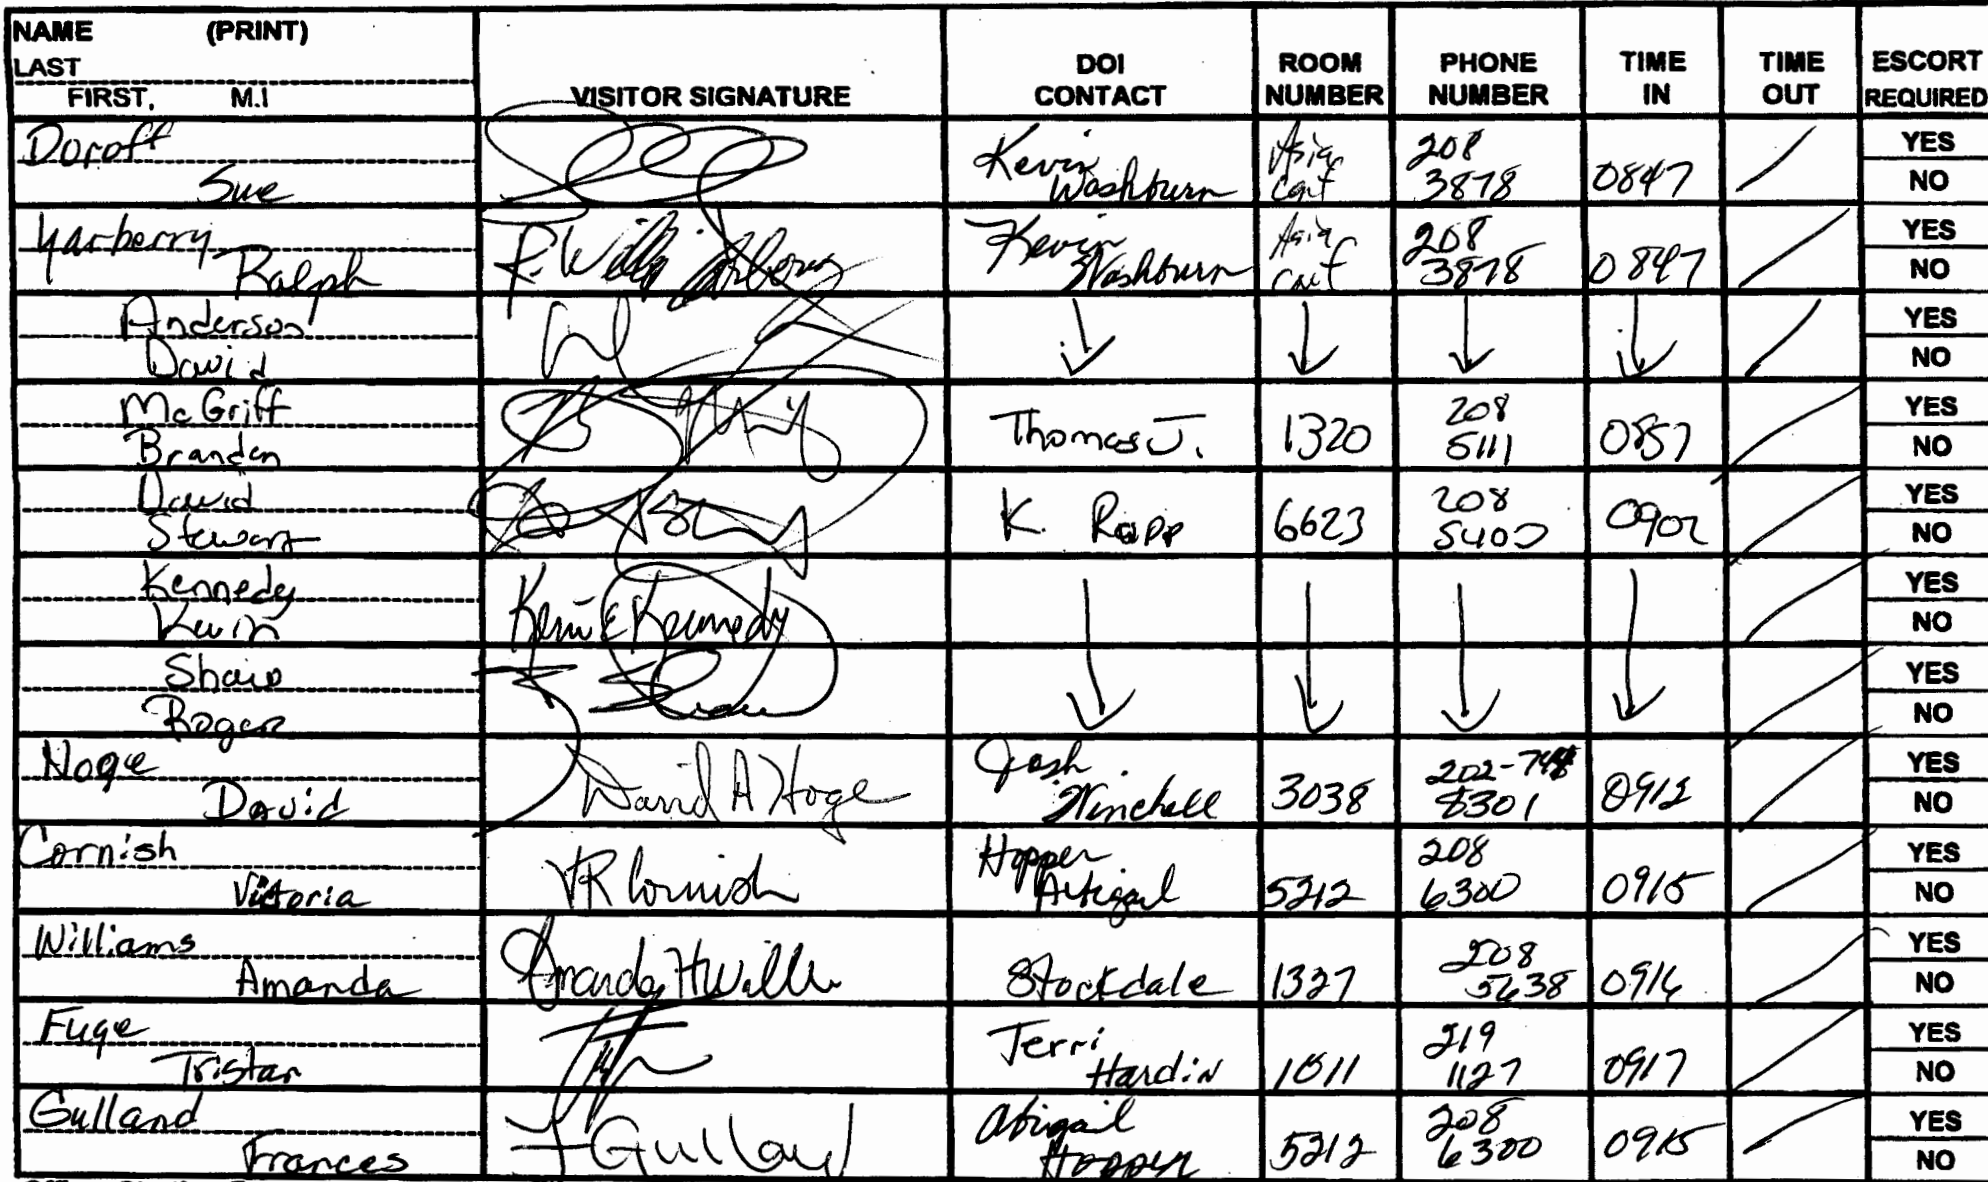 NAME (PRINT)
LAST
FIRST, M.I
VISITOR SIGNATURE
DOI
CONTACT
ROOM
NUMBER
PHONE
NUMBER
TIME
IN
TIME
OUT
ESCORT
REQUIRED
Doroff
Sue
Kevin
Washburn
Asia
208
3878
0847
YES
NO
Yarberry
Ralph
Kevin
Washburn
Asia
208
3878
0847
YES
NO
Anderson
David
YES
NO
McGriff
Brandon
Thomas J.
1320
208
5111
0857
YES
NO
David
Stewart
K. Rapp
6623
208
5400
0902
YES
NO
Kennedy
Kevin
Kevin E Kennedy
YES
NO
Shaw
Roger
YES
NO
Hoge
David
David A Hoge
Josh
Winchell
3038
202-
8301
0912
YES
NO
Cornish
Victoria
VR Cornish
Hopper
Abigail
5212
208
6300
0915
YES
NO
Williams
Amanda
Amanda H Will
Stockdale
1327
208
5638
0916
YES
NO
Fuge
Tristan
Terri
Hardin
1011
219
1127
0917
YES
NO
Gulland
Frances
F Gulland
Abigail
Hopper
5212
208
6300
0915
YES
NO